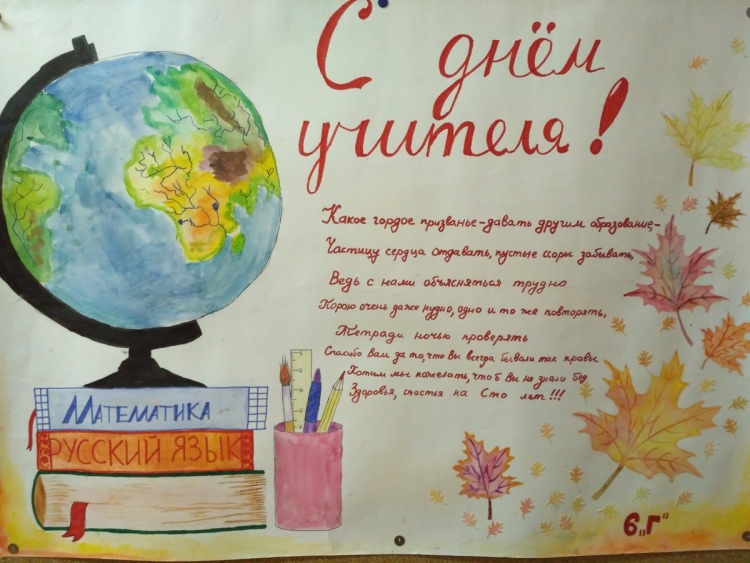 С днём
учителя!
Какое гордое призванье-давать другим образование,-
Частицу сердца отдавать, пустые ссоры забывать,
Ведь с нами объясняться трудно
Порою очень даже нудно, одно и то же повторять,
Тетради ночью проверять
Спасибо Вам за то, что Вы всегда бывали так правы
Хотим мы пожелать, чтоб Вы не знали бед
Здоровья, счастья на Сто лет!!!
МАТЕМАТИКА
РУССКИЙ ЯЗЫК
6„Г“